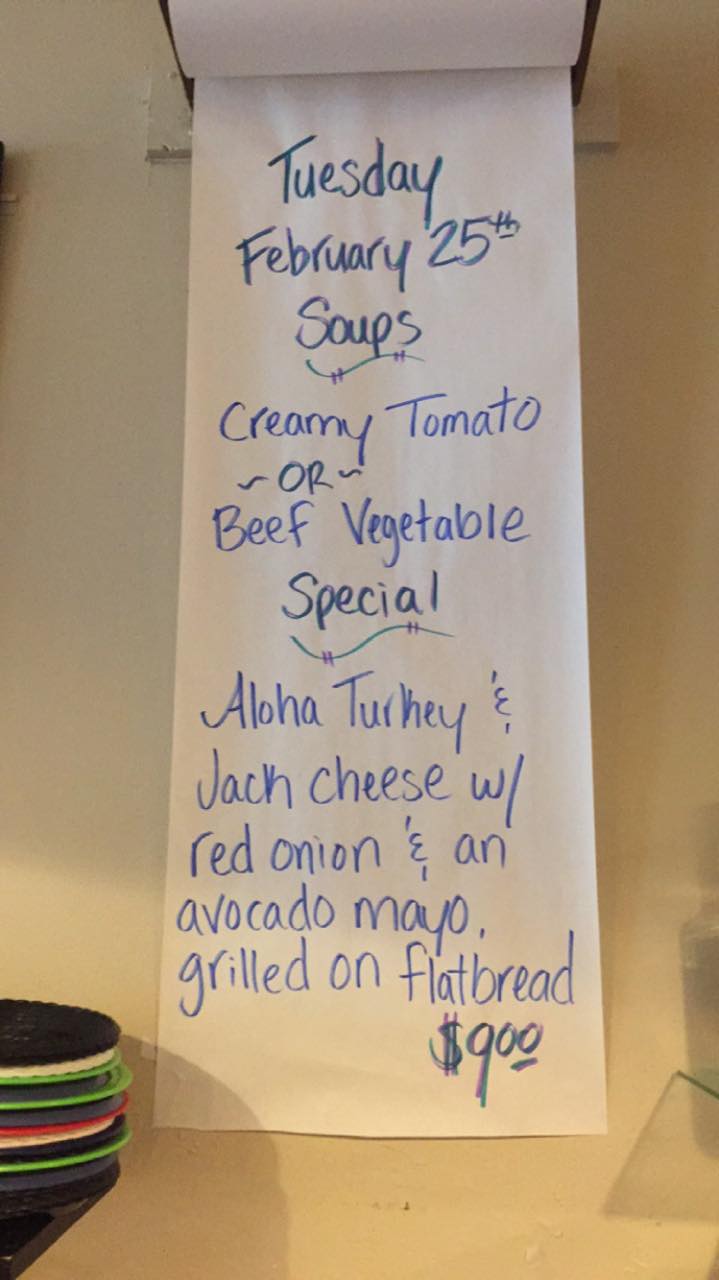 Tuesday
February 25th
Soups
Creamy Tomato
~OR~
Beef Vegetable
Special
Aloha Turkey &
Jack cheese w/
red onion & an
avocado mayo,
grilled on flatbread
$900